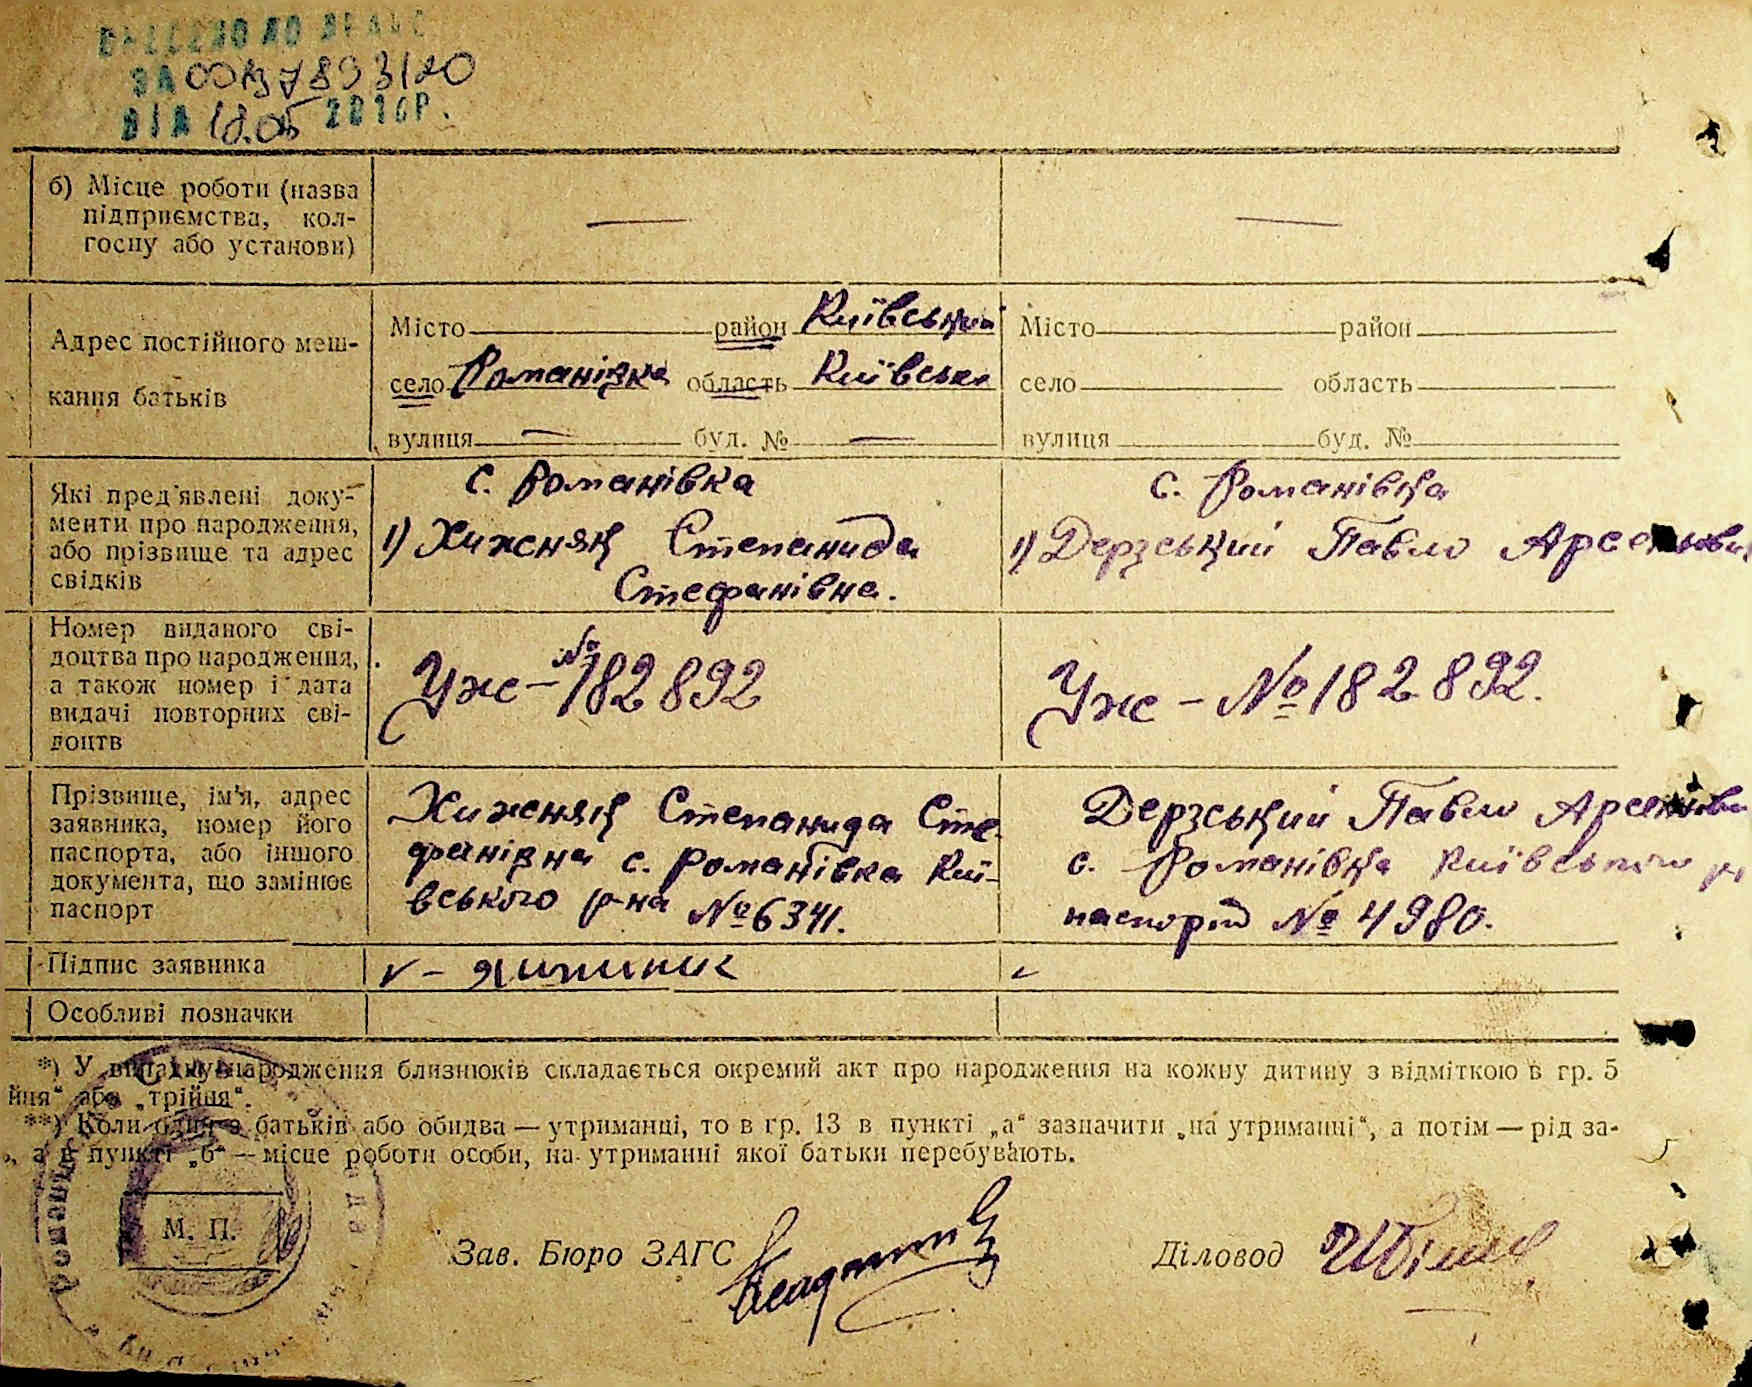 ВНЕСЕНО ДО ДРАЦС
ЗА 00137893120
ВІД 18.05 2016Р.
б) Місце роботи (назва підприємства, кол-госпу або установи) — —
Адрес постійного меш-кання батьків
Місто район Київський Місто район
село Романівка область Київська село область
вулиця — буд. № — вулиця буд. №
Які пред'явлені доку-
менти про народження,
або прізвище та адрес
свідків
с. Романівка
1) Хижняк Степанида
Стефанівна.
с. Романівка
1) Дерзський Павло
Номер виданого сві-
доцтва про народження,
а також номер і дата
видачі повторних сві-
доцтв
Уж-№182892
Уж-№182892.
Прізвище, ім'я, адрес
заявника, номер його
паспорта, або іншого
документа, що замінює
паспорт
Хижняк Степанида Сте-
фанівна с. Романівка Киї-
вського р-на №6341.
Дерзський Павло
с. Романівка Київського
паспорт № 4980.
Підпис заявника
Особливі позначки
*) У випадку народження близнюків складається окремий акт про народження на кожну дитину з відміткою в гр. 5
йня" або „трійня".
**) Коли один з батьків або обидва — утриманці, то в гр. 13 в пункті „а" зазначити „на утриманні", а потім — рід за-
, а в пункті „б" — місце роботи особи, на утриманні якої батьки перебувають.
М. П.
Зав. Бюро ЗАГС Діловод